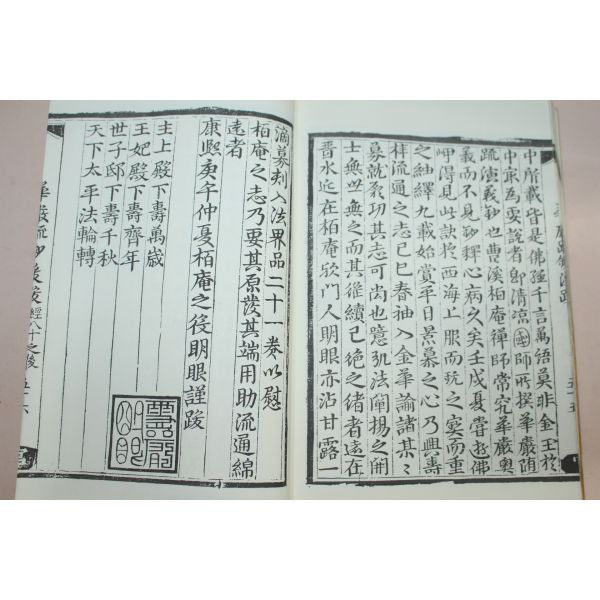 中所載皆是佛經千言萬語莫非金玉於
中最為要說者即清凉國師所撰華嚴隨
疏演義鈔也曹溪栢庵禪師常究華嚴奧
義而不見鈔釋心病之矣壬戌夏嘗遊佛
岬得見此訣於西海上服而玩之寔而重
之紬繹九載始賞平日景慕之心乃興壽
梓流通之志己巳春袖入金華諭諸某某
募就厥功其志可尚也噫弘法闡揚之開
士無世無之而其継續已絶之緒者遠在
晋水近在栢庵歟門人明眼亦沾甘露一
滴募刻入法界品二十一卷以慰
栢庵之志乃要其原發其端用助流通綿
遠者
康熙庚午仲夏栢庵之後明眼謹跋
主上殿下壽萬歲
王妃殿下壽齊年
世子邸下壽千秋
天下太平法輪轉
華嚴疏鈔後跋 經八十之後 五十六